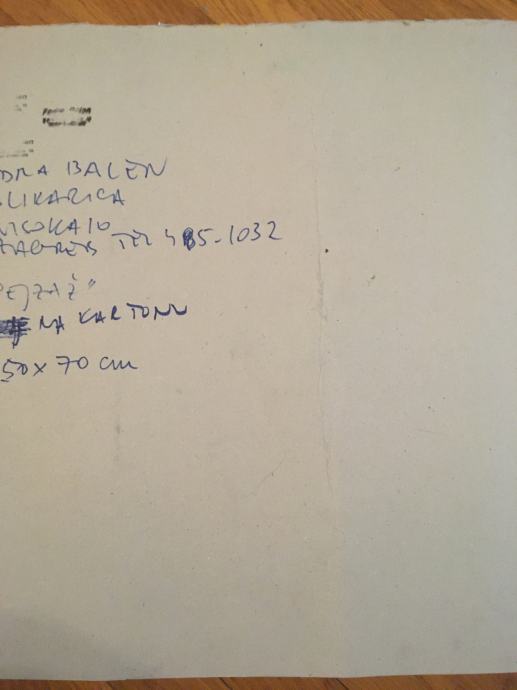 DRA BALEN
SLIKARICA
VISOKA 10
ZAGREB TEL 485-1032
PEJZAŽ"
NA KARTONU
50 x 70 cm